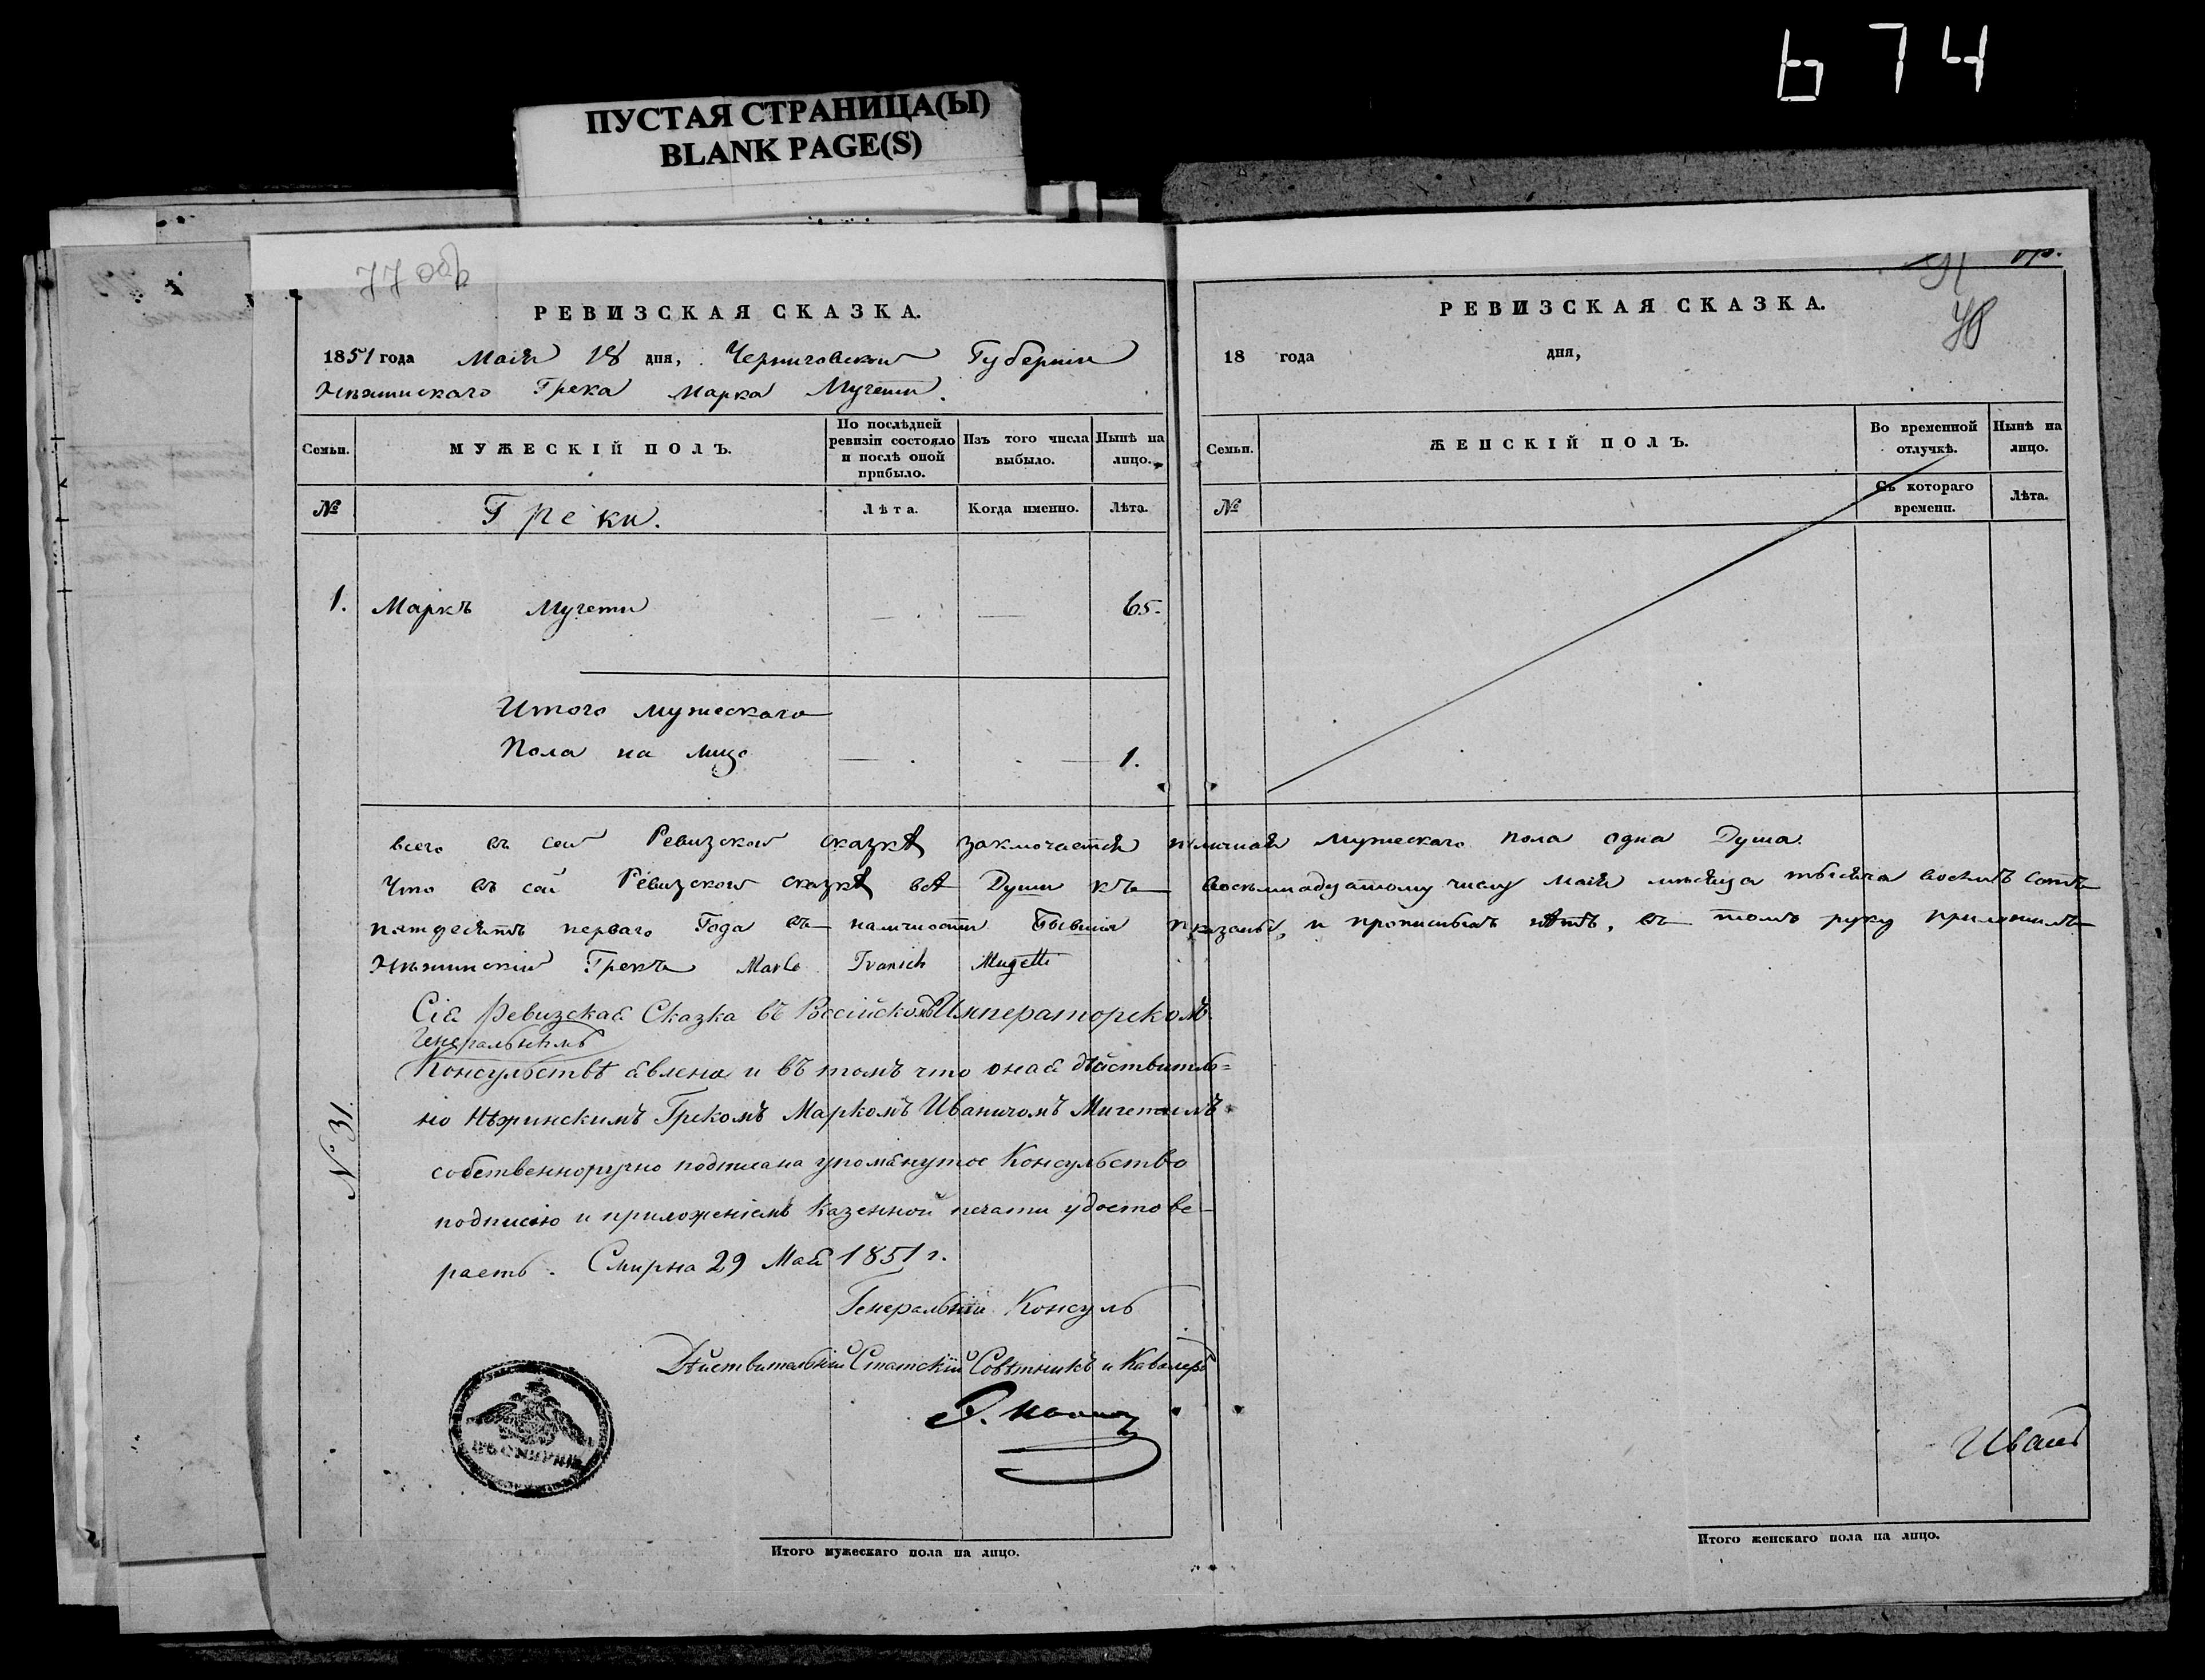 674
ПУСТАЯ СТРАНИЦА(Ы)
BLANK PAGE(S)
77 об
РЕВИЗСКАЯ СКАЗКА.
1851 года Маія 18 дня, Черниговской Губерніи
Нѣжинскаго Грека Марка Мугети.
Семьи.
МУЖЕСКІЙ ПОЛЪ.
По послѣдней ревизіи состояло и послѣ оной прибыло.
Изъ того числа выбыло.
Нынѣ на лицо.
№
Греки.
Лѣта.
Когда именно.
Лѣта.
1. Маркъ Мугети — — 65.
Итого мужескаго
Пола на лицо — — 1.
РЕВИЗСКАЯ СКАЗКА.
18 года дня,
Семьи.
ЖЕНСКІЙ ПОЛЪ.
Во временной отлучкѣ.
Нынѣ на лицо.
№
Съ котораго времени.
Лѣта.
всего въ сей Ревизской сказкѣ заключается наличная мужескаго пола одна Душа.
Что въ сей Ревизской сказкѣ всѣ Души къ восемьнадцатому числу Маія мѣсяца тысяча восемъ сотъ
пятдесятъ перваго Года въ наличности бывшія показаны, и прописныхъ нѣтъ, въ томъ руку приложилъ
Нѣжинскій Грекъ Marco Ivanich Mugetti
Сія Ревизская Сказка въ Россійскомъ Императорскомъ
Генеральномъ
Консульствѣ явлена и въ томъ что оная дѣйствитель=
но Нѣжинскимъ Грекомъ Маркомъ Иваничомъ Мигетимъ
собственноручно подписана упомянутое Консульство
подписью и приложеніемъ Казенной печати удостове-
ряетъ. Смирна 29 Мая 1851 г.
Генеральный Консулъ
Дѣйствительный Статскій Совѣтникъ и Кавалеръ
№ 31.
ВЪ СМИРНѢ
Иванъ
Итого мужескаго пола на лицо.
Итого женскаго пола на лицо.